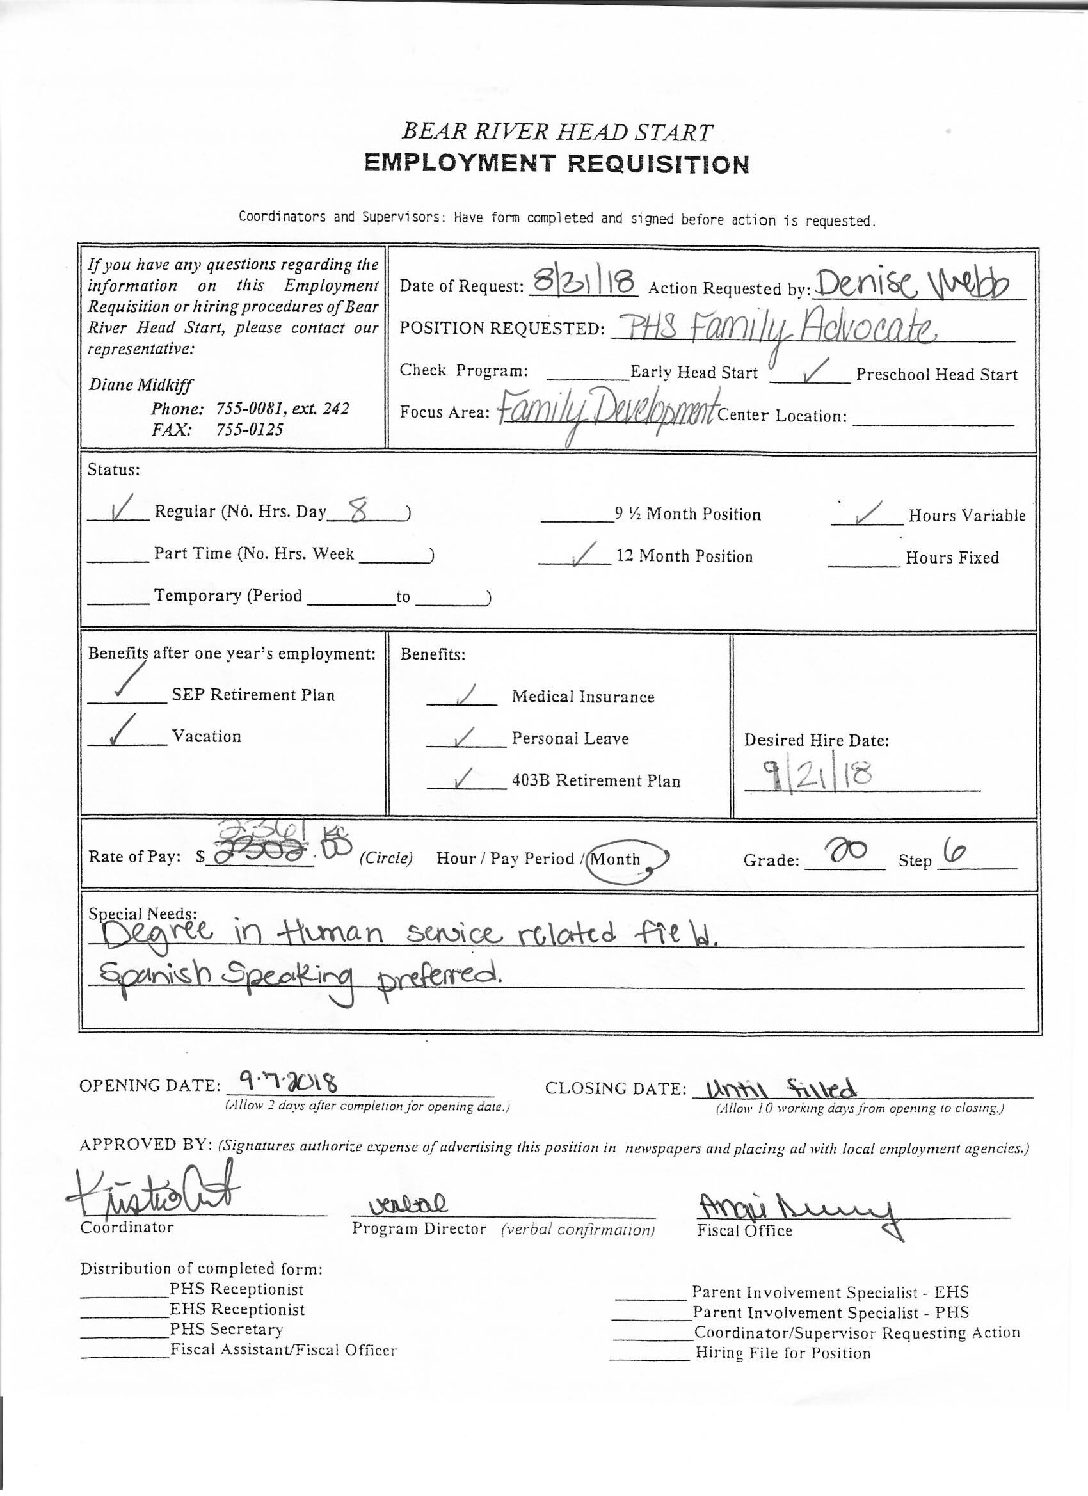 BEAR RIVER HEAD START
EMPLOYMENT REQUISITION
Coordinators and Supervisors: Have form completed and signed before action is requested.
If you have any questions regarding the
information on this Employment
Requisition or hiring procedures of Bear
River Head Start, please contact our
representative:
Diane Midkiff
Phone: 755-0081, ext. 242
FAX: 755-0125
Date of Request: 8/21/18 Action Requested by: Denise Webb
POSITION REQUESTED: PHS Family Advocate
Check Program: ______ Early Head Start ✓ Preschool Head Start
Focus Area: Family Development Center Location: ______
Status:
✓ Regular (No. Hrs. Day 8 )
______ Part Time (No. Hrs. Week ______)
______ Temporary (Period ______ to ______)
______ 9 ½ Month Position
✓ 12 Month Position
✓ Hours Variable
______ Hours Fixed
Benefits after one year's employment:
✓ SEP Retirement Plan
✓ Vacation
Benefits:
✓ Medical Insurance
✓ Personal Leave
✓ 403B Retirement Plan
Desired Hire Date:
9/21/18
Rate of Pay: $ 2361 .00 (Circle) Hour / Pay Period / Month Grade: 20 Step 6
Special Needs:
Degree in Human service related field.
Spanish Speaking preferred.
OPENING DATE: 9.7.2018
(Allow 2 days after completion for opening date.)
CLOSING DATE: Until filled
(Allow 10 working days from opening to closing.)
APPROVED BY: (Signatures authorize expense of advertising this position in newspapers and placing ad with local employment agencies.)
verbal
Angie
Coordinator Program Director (verbal confirmation) Fiscal Office
Distribution of completed form:
______ PHS Receptionist
______ EHS Receptionist
______ PHS Secretary
______ Fiscal Assistant/Fiscal Officer
______ Parent Involvement Specialist - EHS
______ Parent Involvement Specialist - PHS
______ Coordinator/Supervisor Requesting Action
______ Hiring File for Position